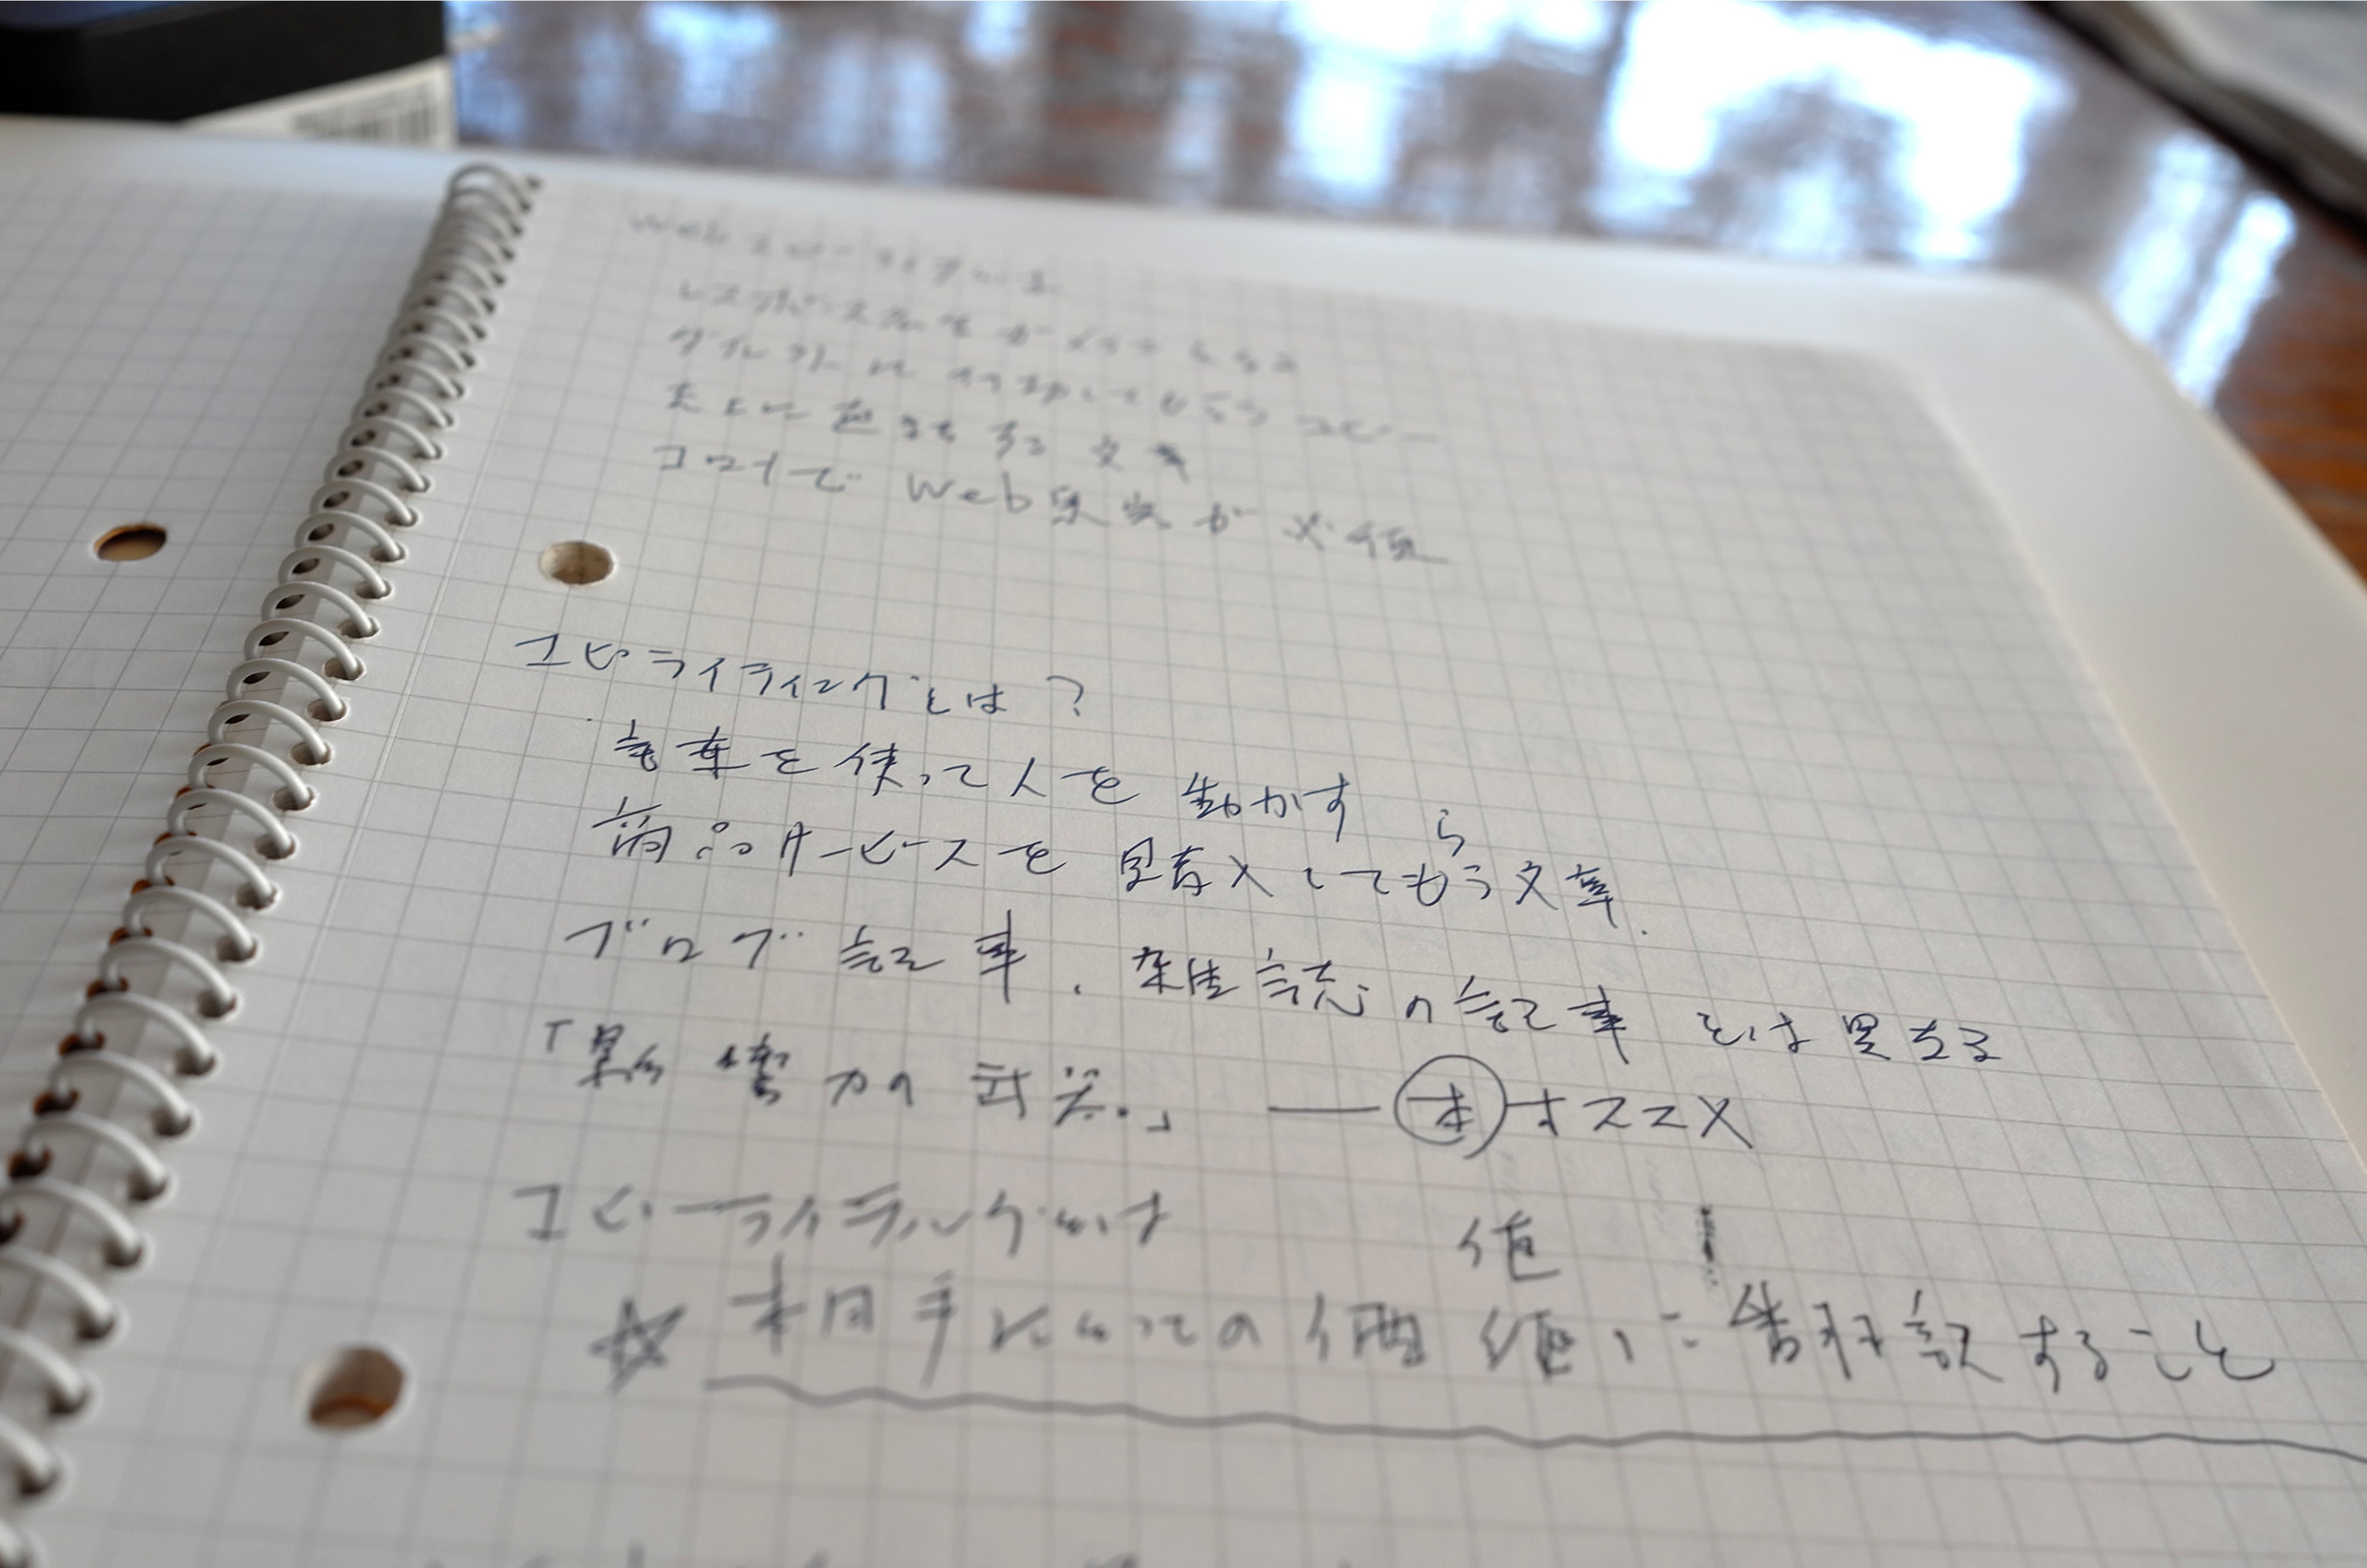 Webコピーライティング
レスポンス
ターゲットに行動してもらうコピー
売上に直結する文章
コワイでWeb集客が必須
コピライティングとは?
言葉を使って人を動かす
商品サービスを購入してもらう文章.
ブログ記事、雑誌の記事とは異なる
「影響力の武器」 — 本オススメ
コピーライティングとは
☆相手にとっての価値に翻訳すること